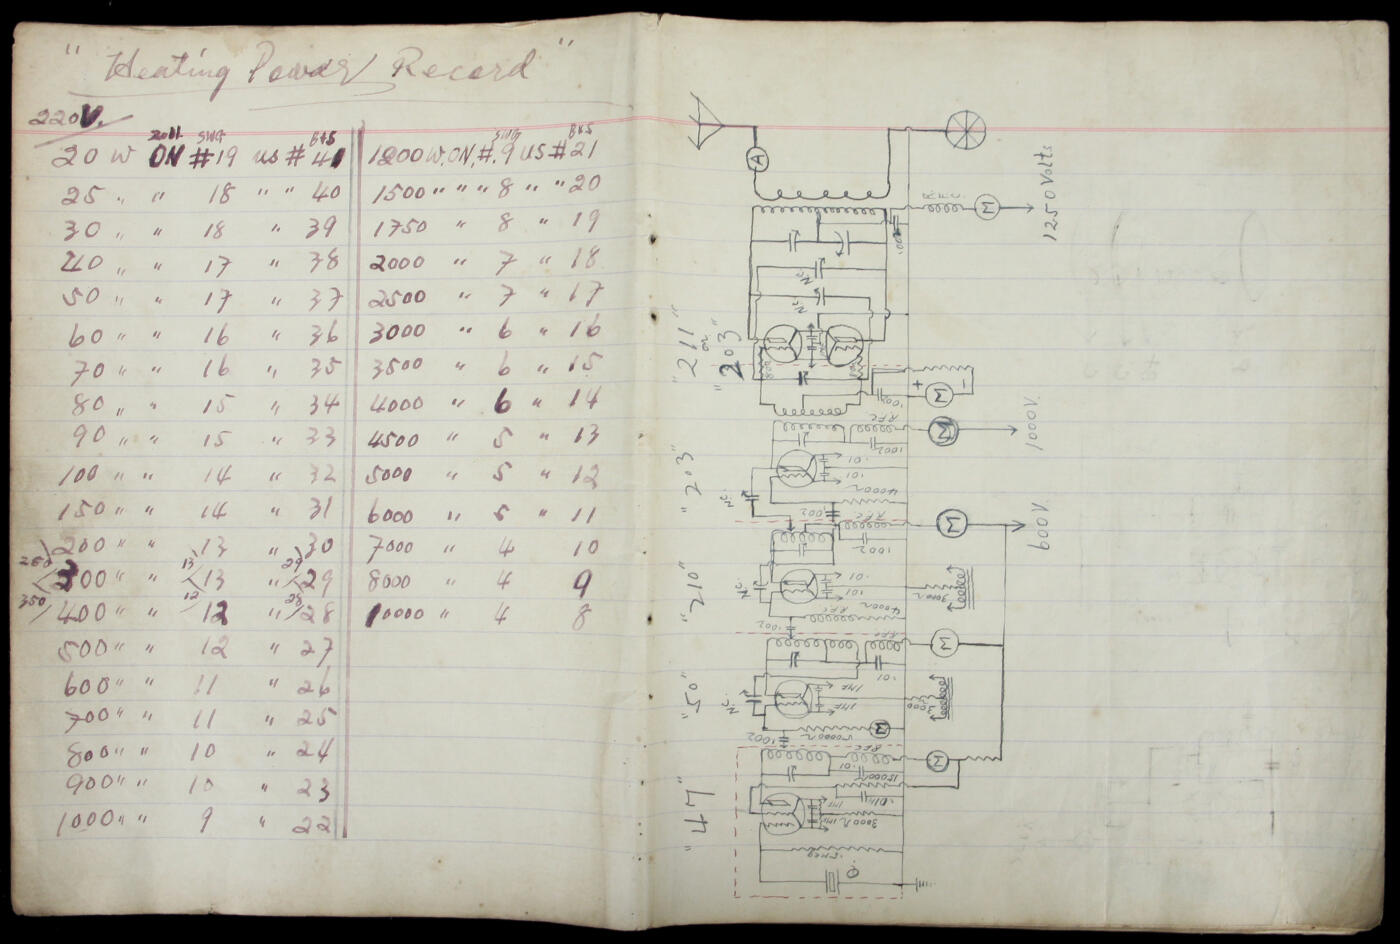 " Heating Power Record "
220V.
20 W ON #19 US #41
25 " " 18 " " 40
30 " " 18 " 39
40 " " 17 " 38
50 " " 17 " 37
60 " " 16 " 36
70 " " 16 " 35
80 " " 15 " 34
90 " " 15 " 33
100 " " 14 " 32
150 " " 14 " 31
200 " " 13 " 30
250 13 29
300 " " 13 " 29
350 12 28
400 " " 12 " 28
500 " " 12 " 27
600 " " 11 " 26
700 " " 11 " 25
800 " " 10 " 24
900 " " 10 " 23
1000 " " 9 " 22
SWG B&S
1200 W. ON, #.9 US #21
1500 " " " 8 " " 20
1750 " 8 " 19
2000 " 7 " 18
2500 " 7 " 17
3000 " 6 " 16
3500 " 6 " 15
4000 " 6 " 14
4500 " 5 " 13
5000 " 5 " 12
6000 " 5 " 11
7000 " 4 10
8000 " 4 9
10000 " 4 8
"47"
"50"
"210"
"203"
"211"
or
"203"
A
M
1250 Volts
.002
N.C.
N.C.
M
+ -
.002
RFC
M
1000 V.
.002
.01
.01
4000Ω
N.C.
.002
RFC
M
600 V.
.002
.01
.01
N.C.
3000Ω
4000Ω
RFC
.002
RFC
M
.01
1MF
1MF
N.C.
50000Ω
M
.002
RFC
M
.01
15000Ω
.01
1MF
3000Ω 1MF
.5 Meg
Q